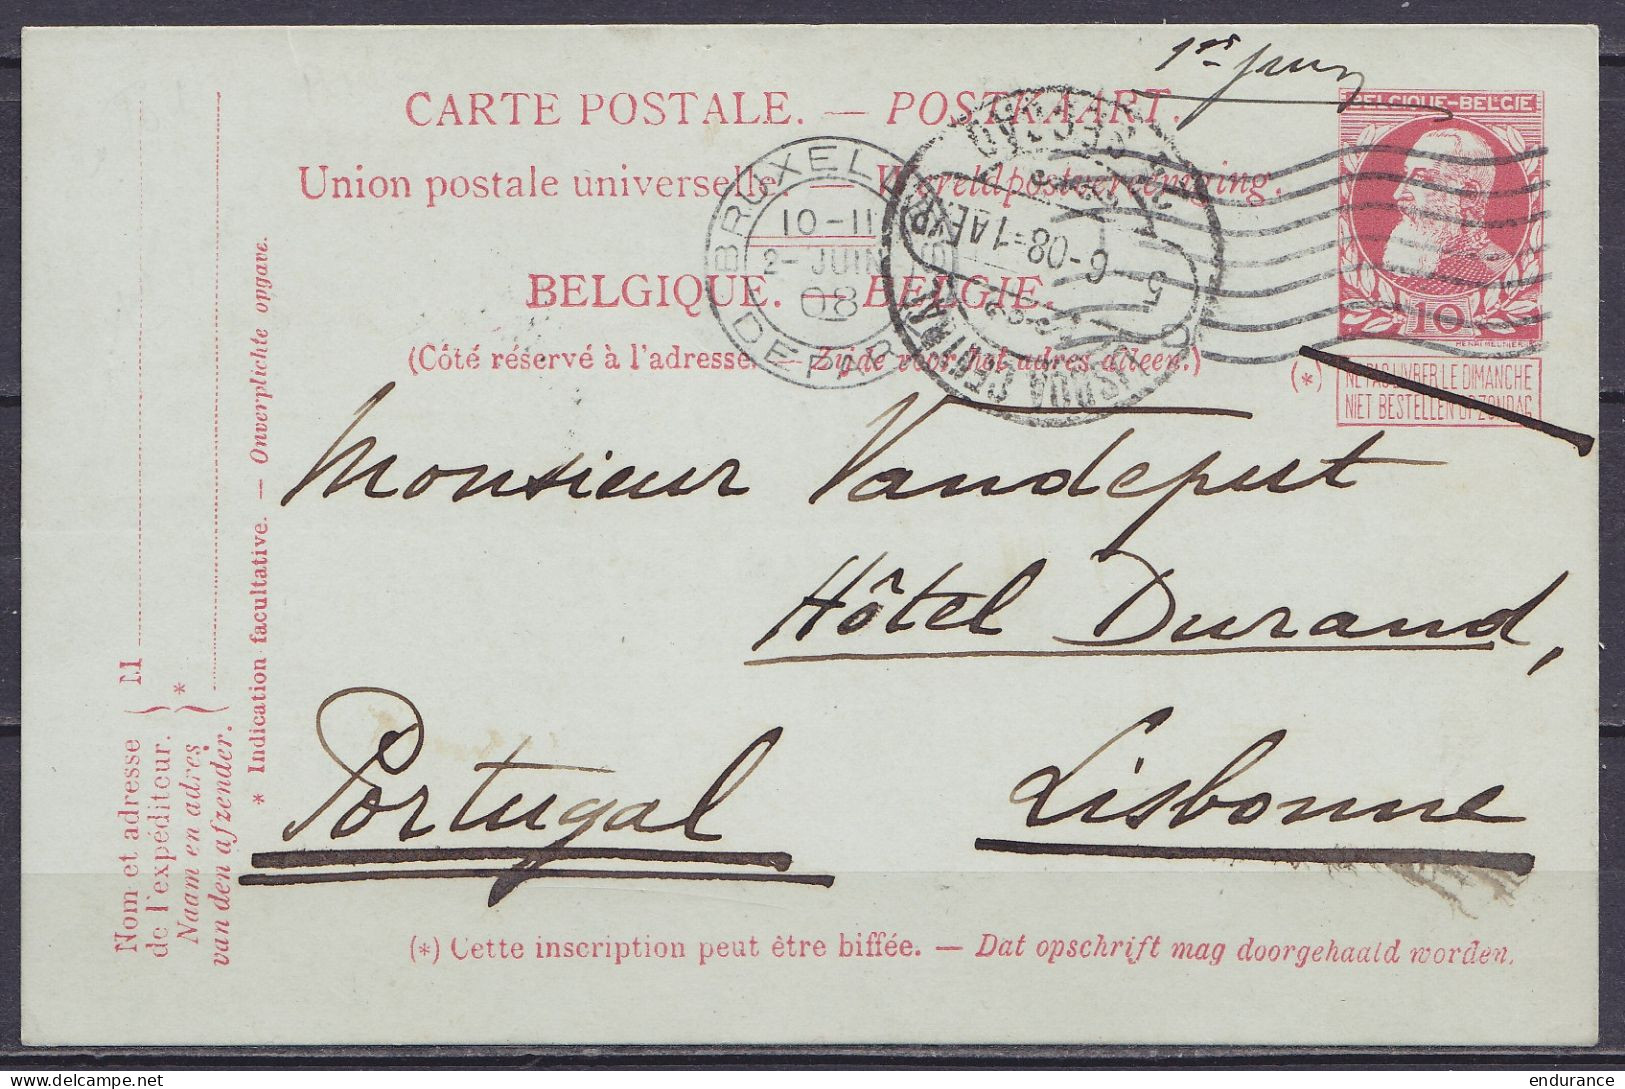 1er juin
CARTE POSTALE. — POSTKAART.
Union postale universelle. — Wereldpostvereeniging.
BELGIQUE. — BELGIE.
(Côté réservé à l'adresse. — Zijde voor het adres alleen.)
BELGIQUE-BELGIE
10
(*) NE PAS LIVRER LE DIMANCHE
NIET BESTELLEN OP ZONDAG
BRUXELLES
10-11
2-JUIN
08
DEPART
LISBOA CENTRAL
6-08-1
5
Monsieur Vandeput
Hôtel Durand,
Portugal Lisbonne
(*) Cette inscription peut être biffée. — Dat opschrift mag doorgehaald worden.
* Indication facultative. — Onverplichte opgave.
Nom et adresse
de l'expéditeur.
Naam en adres
van den afzender.
} M
} *
delcampe.net
endurance